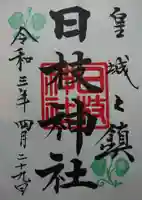 皇城之鎮
日枝神社
日枝神社
令和三年四月二十九日